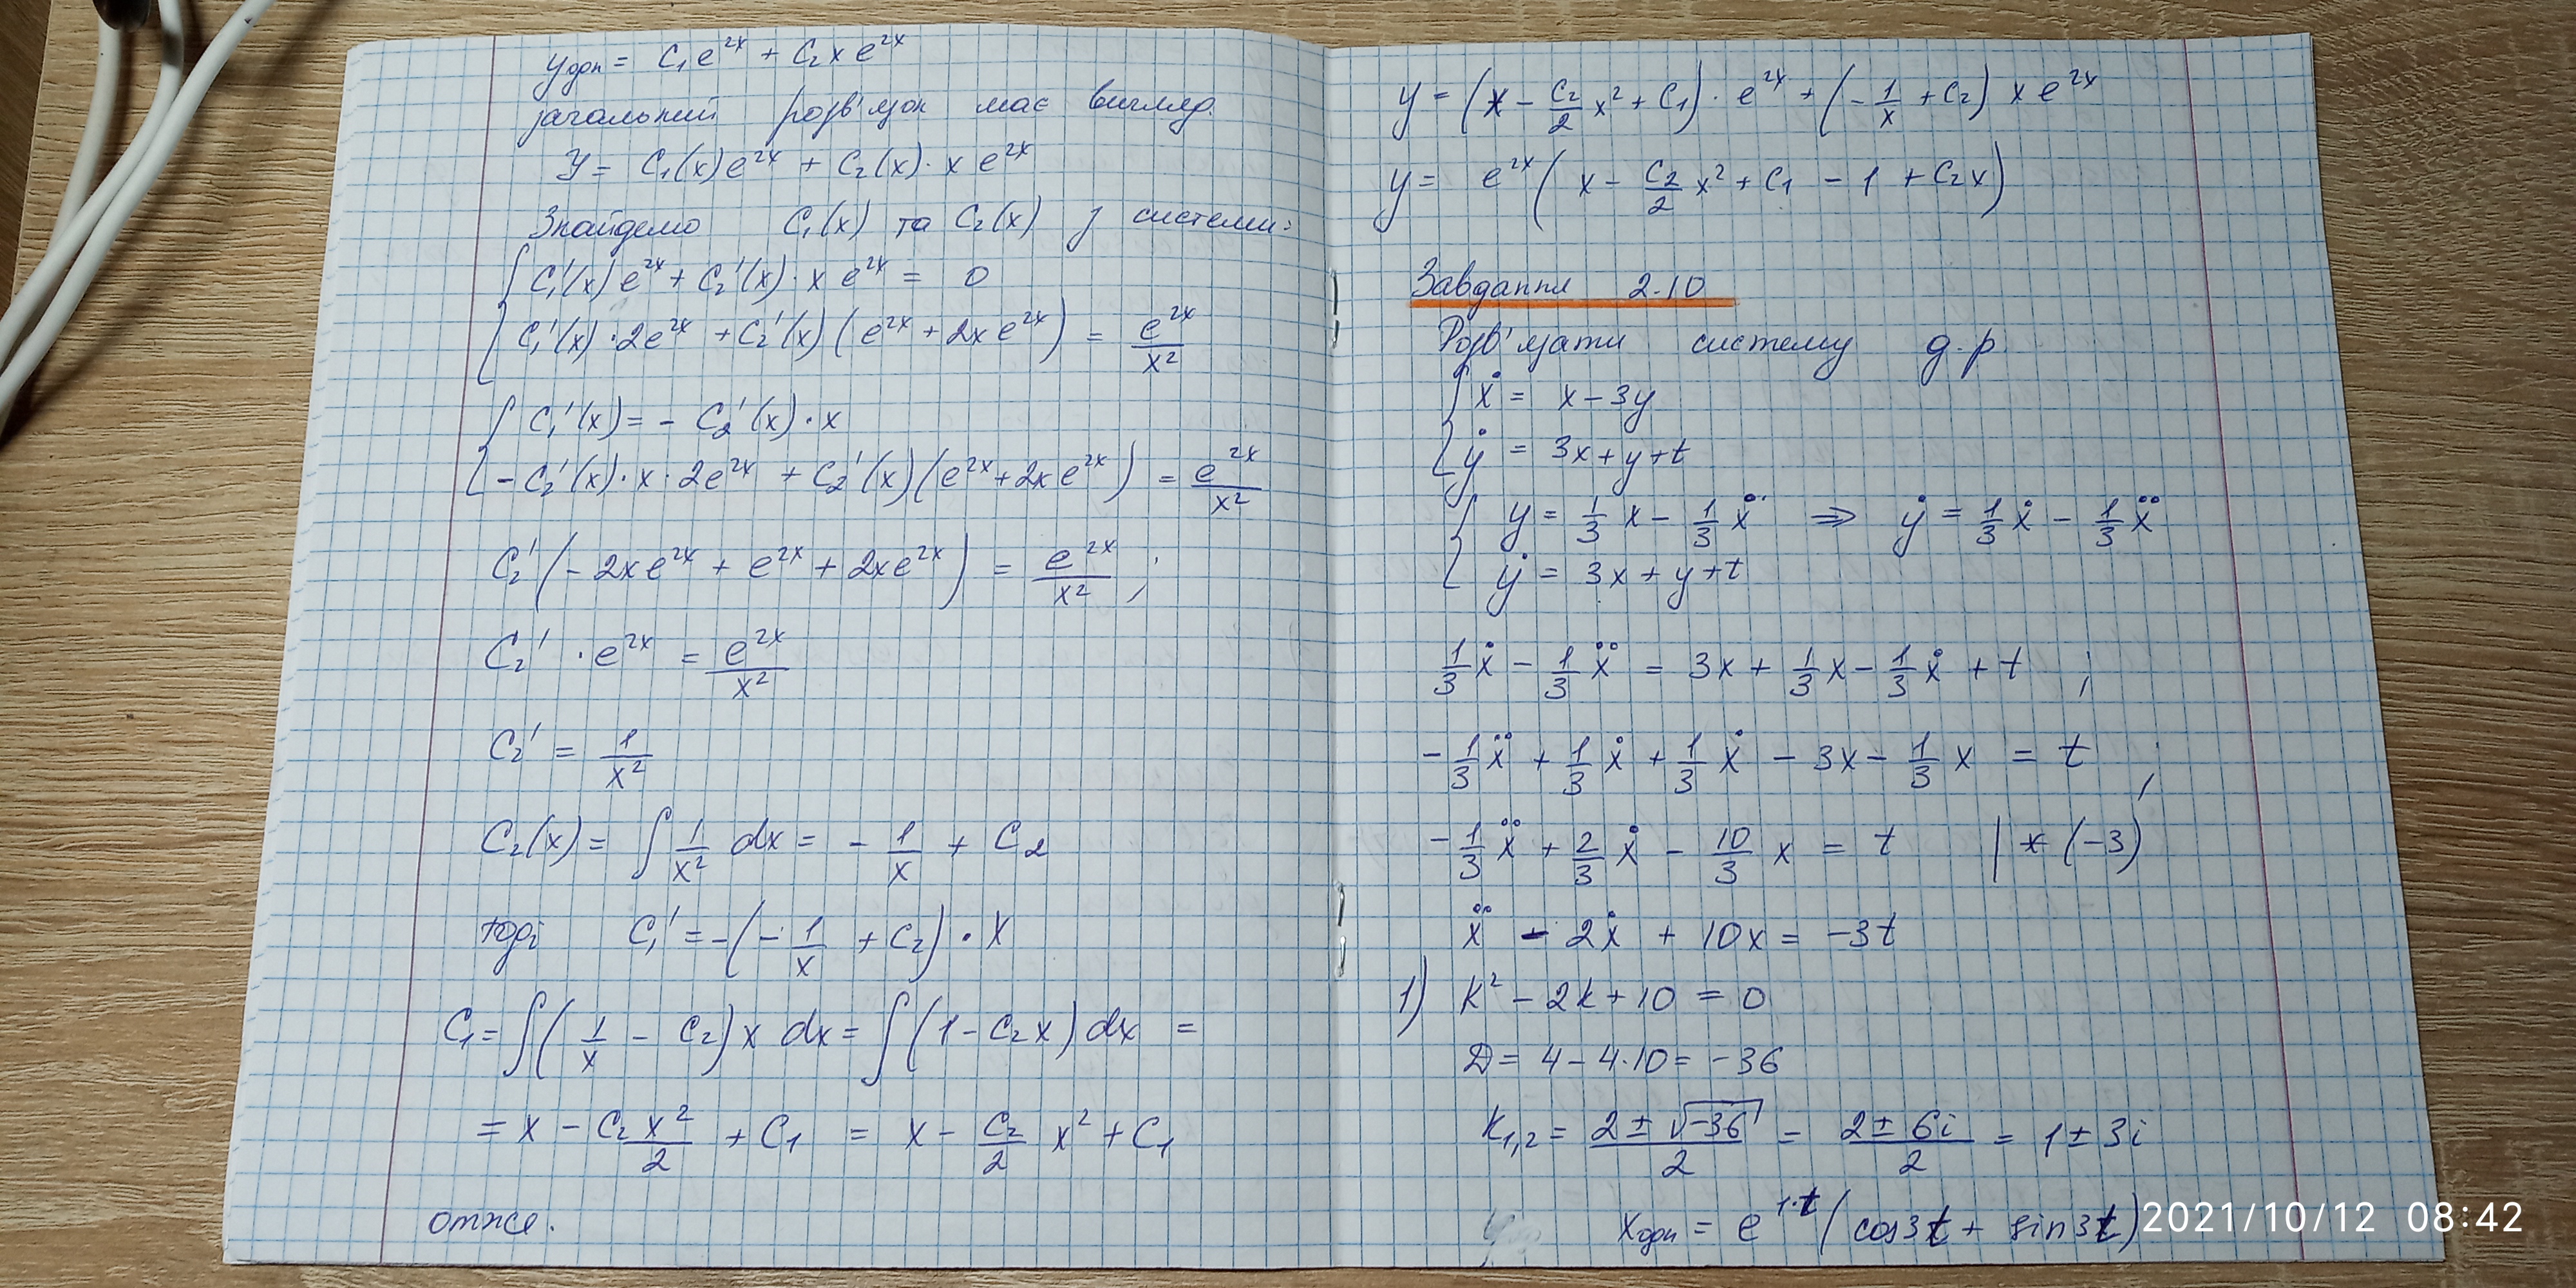 y одн = C₁e²ˣ + C₂xe²ˣ
загальний розв'язок має вигляд.
y = C₁(x)e²ˣ + C₂(x)·xe²ˣ
Знайдемо C₁(x) та C₂(x) з системи:
{ C₁'(x)e²ˣ + C₂'(x)·xe²ˣ = 0
C₁'(x)·2e²ˣ + C₂'(x)(e²ˣ + 2xe²ˣ) = e²ˣ/x²
{ C₁'(x) = - C₂'(x)·x
-C₂'(x)·x·2e²ˣ + C₂'(x)(e²ˣ + 2xe²ˣ) = e²ˣ/x²
C₂'(-2xe²ˣ + e²ˣ + 2xe²ˣ) = e²ˣ/x² ;
C₂'·e²ˣ = e²ˣ/x²
C₂' = 1/x²
C₂(x) = ∫ 1/x² dx = - 1/x + C₂
тоді C₁' = -(- 1/x + C₂)·x
C₁ = ∫(1/x - C₂)x dx = ∫(1 - C₂x)dx =
= x - C₂x²/2 + C₁ = x - C₂/2 x² + C₁
отже.
y = (x - C₂/2 x² + C₁)·e²ˣ + (- 1/x + C₂)xe²ˣ
y = e²ˣ(x - C₂/2 x² + C₁ - 1 + C₂x)
Завдання 2.10
Розв'язати систему д.р.
{ ẋ = x - 3y
ẏ = 3x + y + t
{ y = 1/3 x - 1/3 ẋ ⇒ ẏ = 1/3 ẋ - 1/3 ẍ
ẏ = 3x + y + t
1/3 ẋ - 1/3 ẍ = 3x + 1/3 x - 1/3 ẋ + t ;
- 1/3 ẍ + 1/3 ẋ + 1/3 ẋ - 3x - 1/3 x = t ;
- 1/3 ẍ + 2/3 ẋ - 10/3 x = t | * (-3)
ẍ - 2ẋ + 10x = -3t
1) k² - 2k + 10 = 0
D = 4 - 4·10 = -36
k₁,₂ = (2 ± √-36)/2 = (2 ± 6i)/2 = 1 ± 3i
x одн = e^(1·t) (cos3t + sin3t)
2021/10/12 08:42